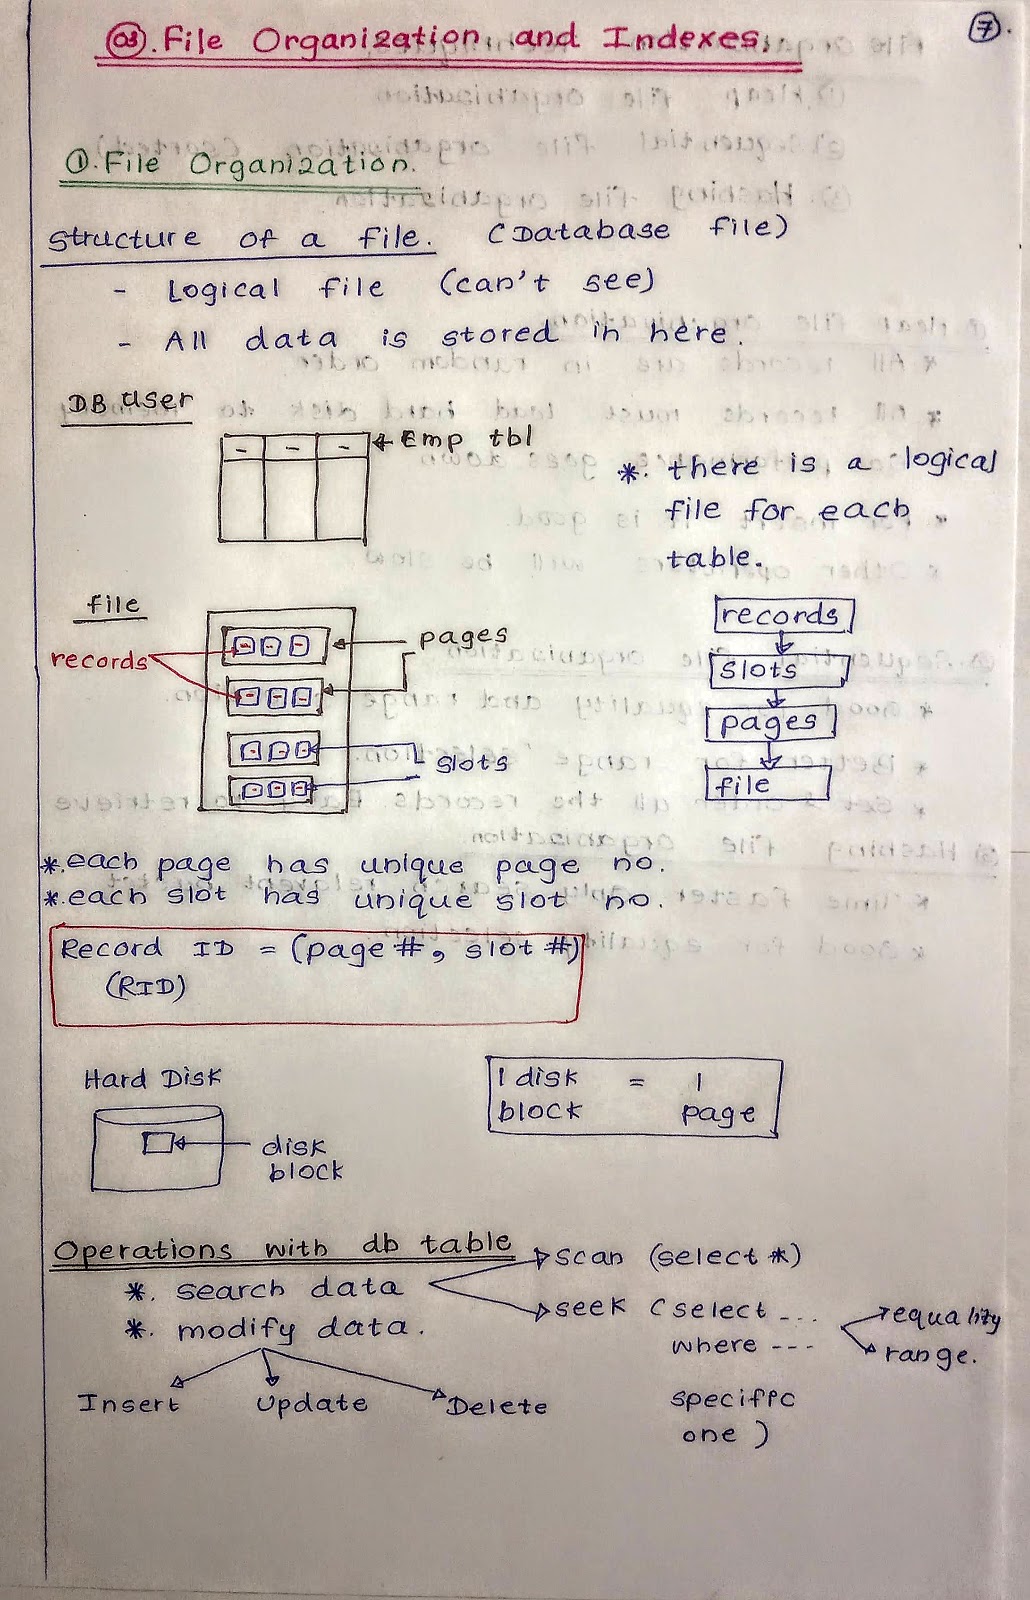 03. File Organization and Indexes.
7.
1. File Organization.
structure of a file. (Database file)
- Logical file (can't see)
- All data is stored in here.
DB user
Emp tbl
*. there is a logical
file for each
table.
file
records
pages
slots
records
slots
pages
file
*. each page has unique page no.
*. each slot has unique slot no.
Record ID = (page #, slot #)
(RID)
Hard Disk
disk
block
1 disk = 1
block page
Operations with db table
*. search data
scan (select *)
seek (select ...
where ---
specific
one )
equality
range.
*. modify data.
Insert update Delete